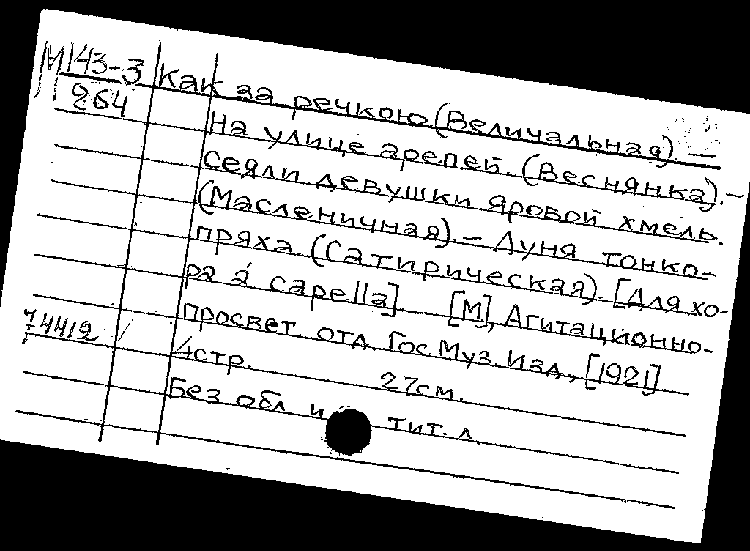 М143-3
264
Как за речкою (Величальная) —
На улице арепей (Веснянка). —
Сеяли девушки яровой хмель.
(Масленичная) — Дуня тонко-
пряха (Сатирическая). [Для хо-
ра a capella]. [М], Агитационно-
просвет. отд. Гос. Муз. Изд., [1921]
4 стр. 27 см.
Без обл. и тит. л.
74412